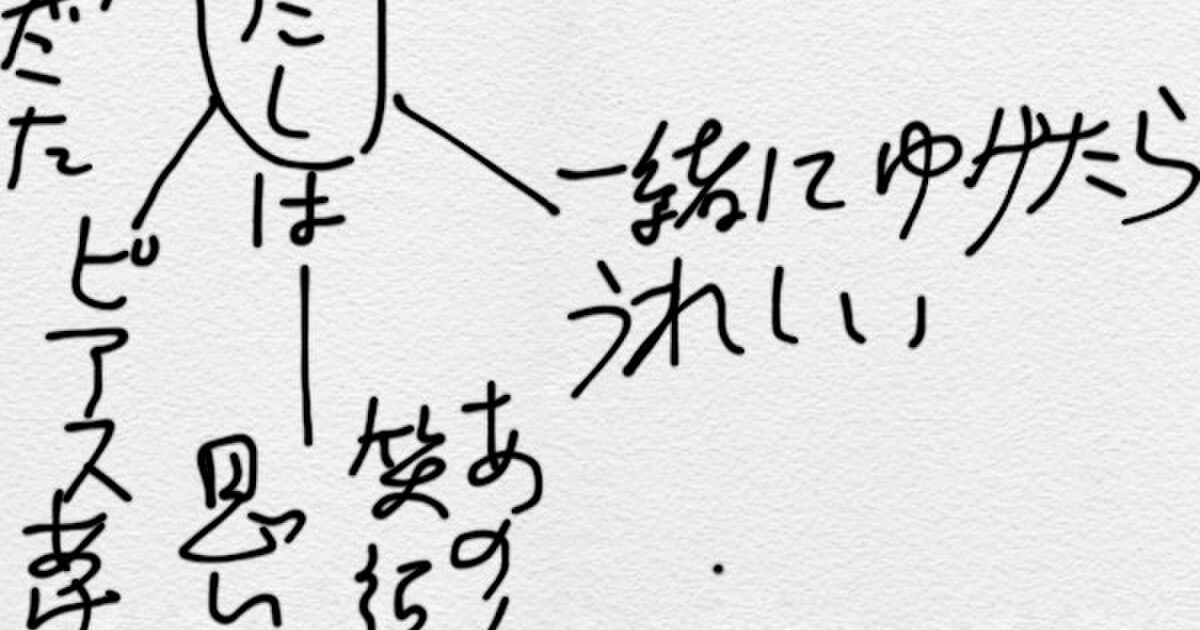 たし
は
一緒にゆけたら
うれしい
あの
笑
思い
ピアスあけ
だた